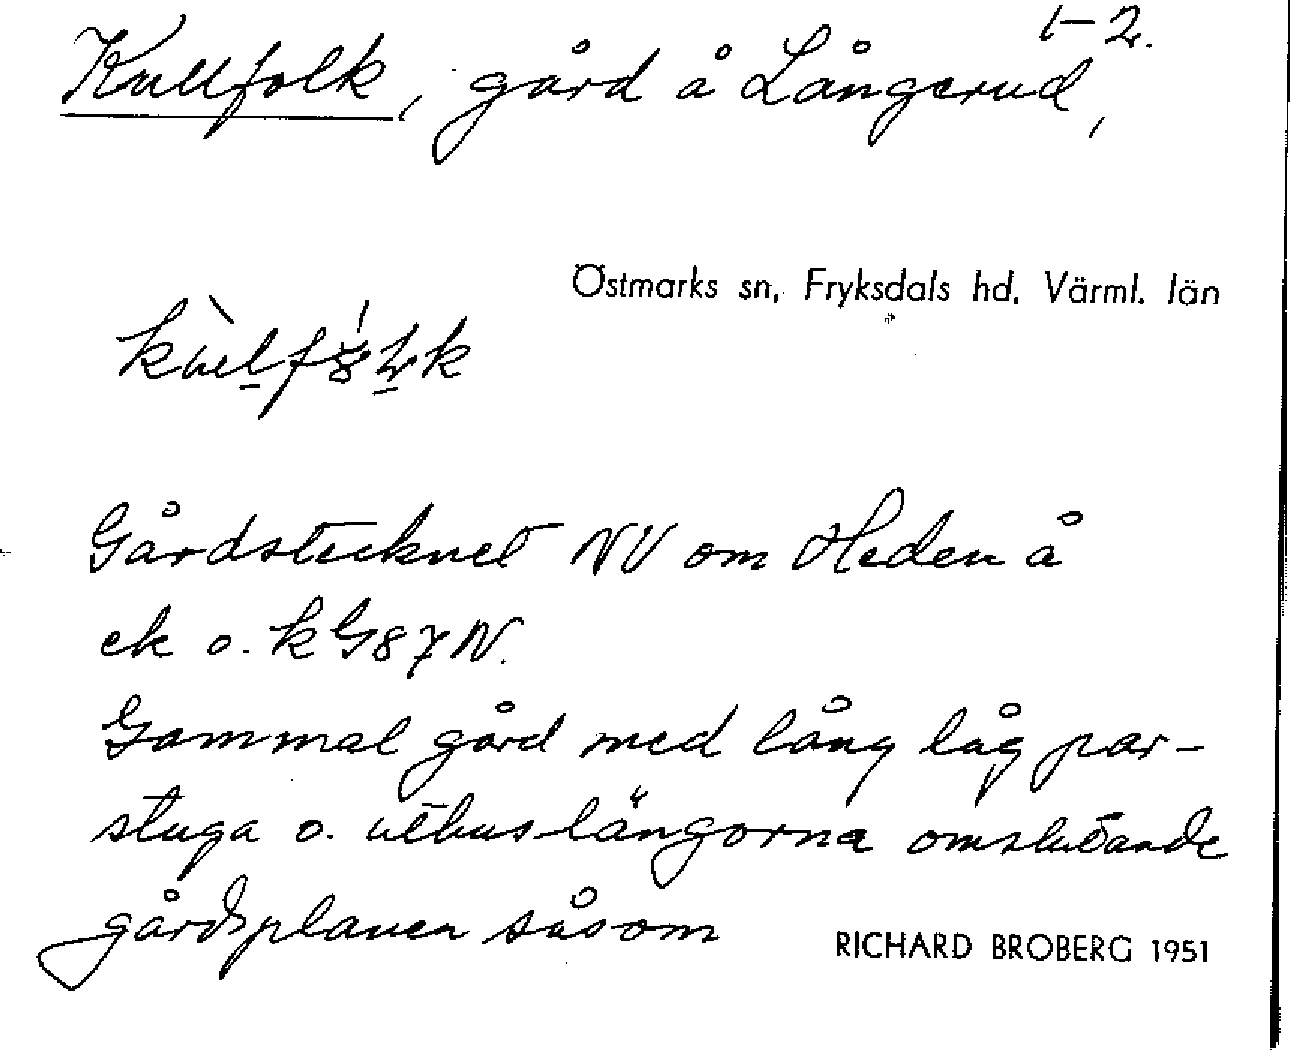 1–2.
Kullfolk, gård å Långerud,
Östmarks sn, Fryksdals hd, Värml. län
Gårdstecknet NV om Heden å
ek o. k G87N.
Gammal gård med lång låg par-
stuga o. uthuslängorna omslutande
gårdsplanen såsom
RICHARD BROBERG 1951